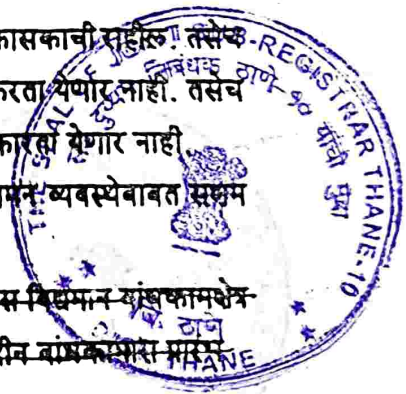 कासकाची राहील. तसेच
करता येणार नाही. तसेच
कारता येणार नाही.
व्यवस्थेबाबत सक्षम
विद्यमान बांधकामक्षेत्र
बांधकामास
THE SEAL OF JOINT SUB-REGISTRAR THANE-10
दुय्यम निबंधक ठाणे-१० यांची मुद्रा
जि. ठाणे
THANE